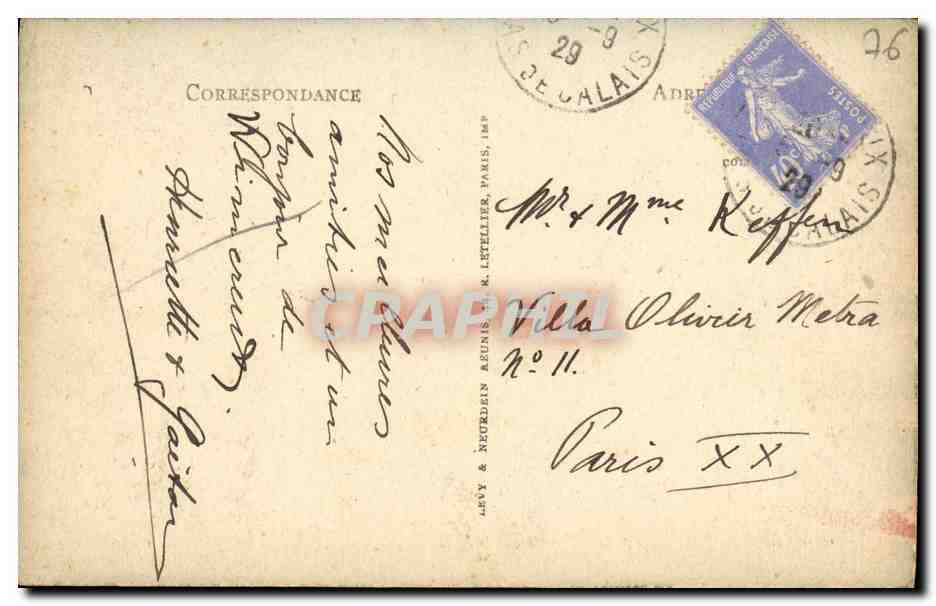 CORRESPONDANCE
Nos meilleures
amitiés et un
bonjour de
Whimereux.
Henriette & Gaëtan
LEVY & NEURDEIN RÉUNIS, R. LETELLIER, PARIS, IMP
-9
29
PAS DE CALAIS
ADRE
REPUBLIQUE FRANÇAISE
POSTES
40c
-9
29
CALAIS
76
Mr & Mme Keffer
Villa Olivier Metra
No 11.
Paris XX
CRAPHIL